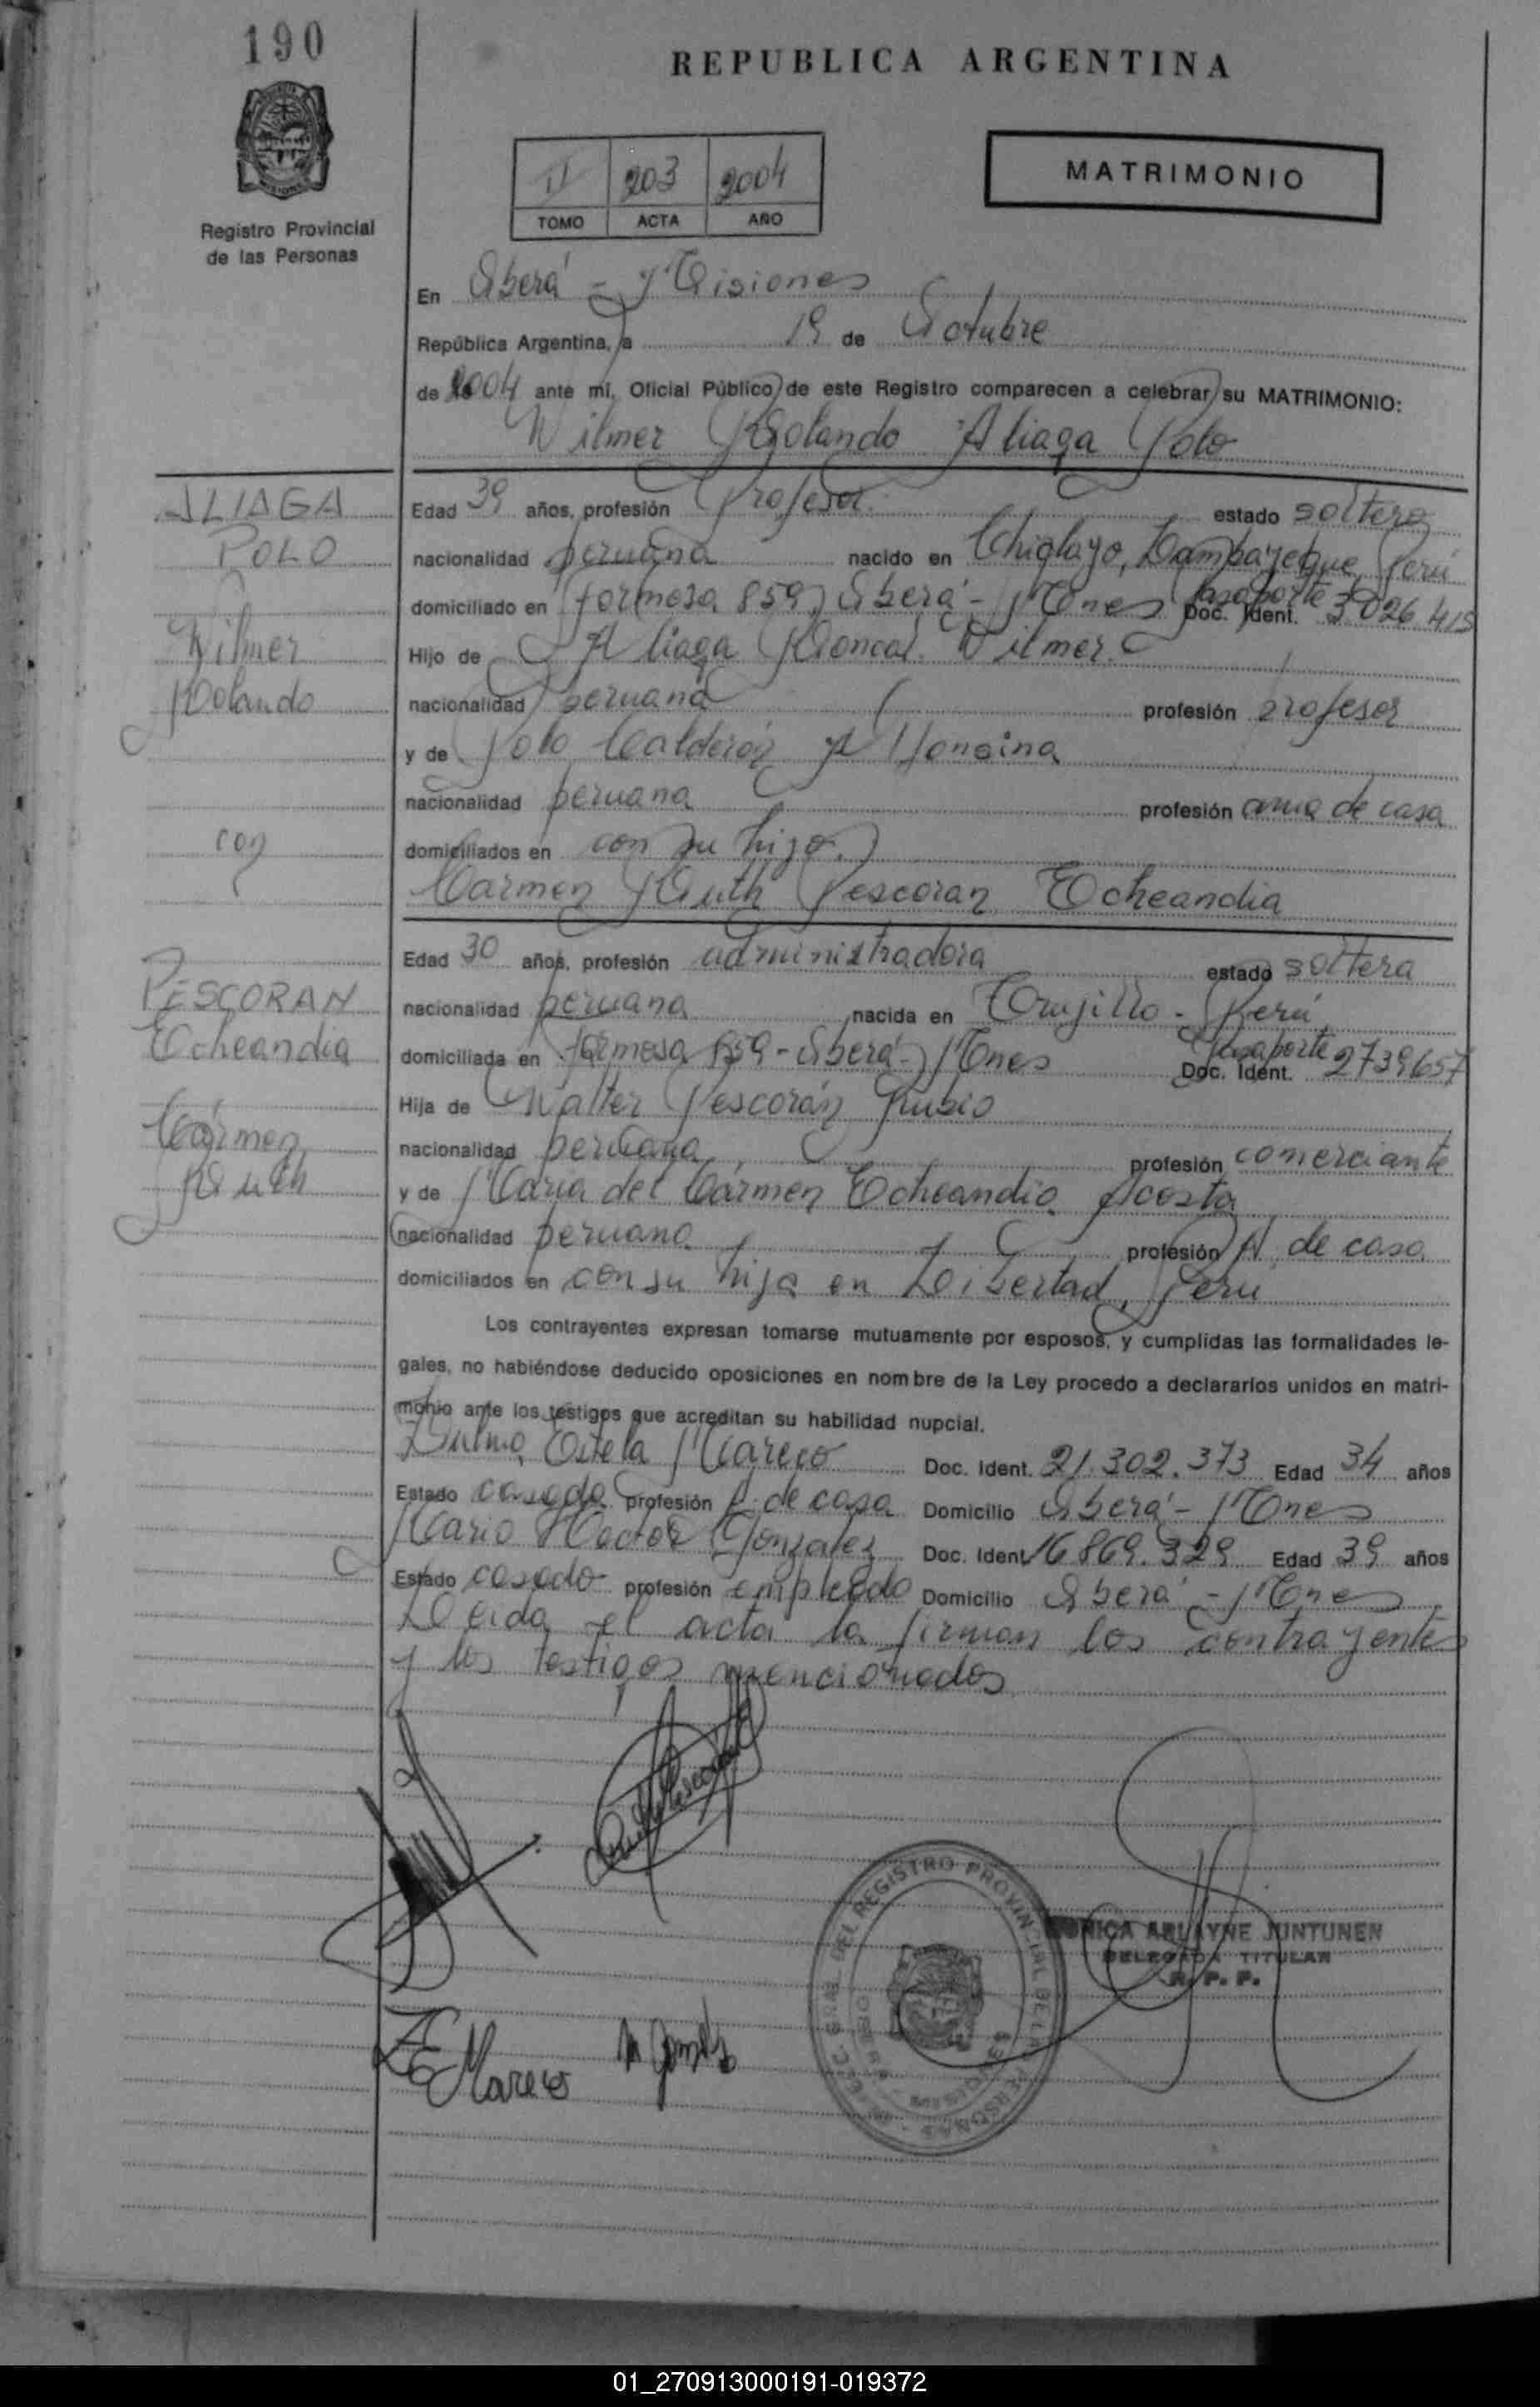 190
REPUBLICA ARGENTINA
Registro Provincial
de las Personas
II 203 2004
TOMO ACTA AÑO
MATRIMONIO
En Oberá - Misiones
República Argentina, a 19 de Octubre
de 2004 ante mí, Oficial Público de este Registro comparecen a celebrar su MATRIMONIO:
Wilmer Rolando Aliaga Polo
ALIAGA
POLO
Wilmer
Rolando
con
PESCORAN
Ocheandia
Cármen
Ruth
Edad 39 años, profesión Profesor. estado soltero
nacionalidad peruana nacido en Chiclayo, Lambayeque, Perú
domiciliado en formosa 859, Oberá - Mnes Pasaporte Doc. Ident. 3026415
Hijo de Aliaga Roncal Wilmer.
nacionalidad peruana profesión profesor
y de Polo Calderón
nacionalidad peruana profesión ama de casa
domiciliados en con su hijo.
Carmen Ruth Pescoran Ocheandia
Edad 30 años, profesión administradora estado soltera
nacionalidad peruana nacida en Trujillo - Perú
domiciliada en formosa 859 - Oberá - Mnes Pasaporte Doc. Ident. 2739657
Hija de Walter Pescorán Rubio
nacionalidad peruana profesión comerciante
y de Maria del Cármen Ocheandia Acosta
nacionalidad peruana profesión A. de casa
domiciliados en con su hija en Libertad, Peru
Los contrayentes expresan tomarse mutuamente por esposos, y cumplidas las formalidades le-
gales, no habiéndose deducido oposiciones en nombre de la Ley procedo a declararlos unidos en matri-
monio ante los testigos que acreditan su habilidad nupcial.
Mareco Doc. Ident. 21.302.373 Edad 34 años
Estado casada profesión A. de casa Domicilio Oberá - Mnes
Mario Hector Gonzalez Doc. Ident. 16.869.329 Edad 39 años
Estado casado profesión empleado Domicilio Oberá - Mnes
Leida el acta la firman los contrayentes
y los testigos mencionados
MONICA ARLAYNE JUNTUNEN
DELEGADA TITULAR
R. P. P.
ZE Mareco
01_270913000191-019372